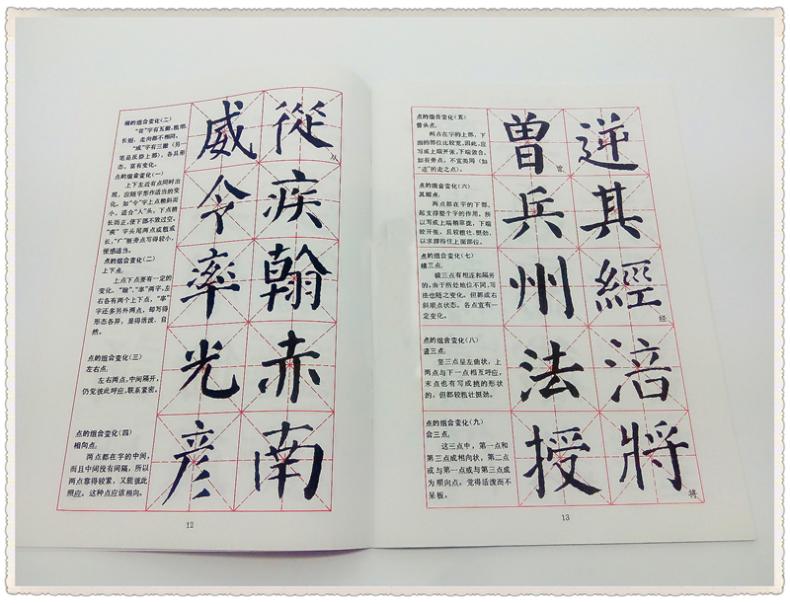 撇的组合变化(二)
"從"字有五撇,粗细、
长短、走向都不相同。
"威"字有三撇(另一
笔是反捺上部),各具形
态,富有变化。
点的组合变化(一)
上下左右有点同时出
现,应随字形作适当的变
化。如"令"字上点稍斜而
小,适合"人"头,下点稍
长而正,使下部不致过空。
"疾"字头尾两点或粗或
长,"疒"框旁点写得较小,
便感适当。
点的组合变化(二)
上下点。
上点下点要有一定的
变化。"翰"、"率"两字,左
右各有两个上下点,"率"
字还多另外两点,却写得
形态各异,显得活泼、自
然。
点的组合变化(三)
左右点。
左右两点,中间隔开,
仍觉彼此呼应,联系紧密。
点的组合变化(四)
相向点。
两点都在字的中间,
而且中间没有间隔,所以
两点靠得较紧,又能彼此
照应。这种点应该相向。
從 威
疾 令
翰 率
赤 光
南 彦
从
12
点的组合变化(五)
曾头点。
两点在字的上部,下
面的部位比较宽,因此,应
写成上端开张,下端敛合。
如有旁点,不宜类同(如
"逆"的走之点)。
点的组合变化(六)
其脚点。
两点都在字的下部,
起支撑整个字的作用,所以
写成上端稍靠拢,下端
较开张,且较粗壮、挺劲,
以求撑得住上面部位。
点的组合变化(七)
横三点。
横三点有相连和隔旁
的。由于所处地位不同,写
法也随之变化。但都成右
斜顺点状态。各点宜有一
定变化。
点的组合变化(八)
竖三点。
竖三点呈左曲状,上
两点与下一点相互呼应,
末点也有写成挑的形状
的,但都较粗壮挺劲。
点的组合变化(九)
合三点。
这三点中,第一点和
第三点成相向状,第二点
或与第一点或与第三点成
为顺向点,觉得活泼而不
呆板。
逆 曾
其 兵
經 州
涪 法
將 授
曾
经
将
13